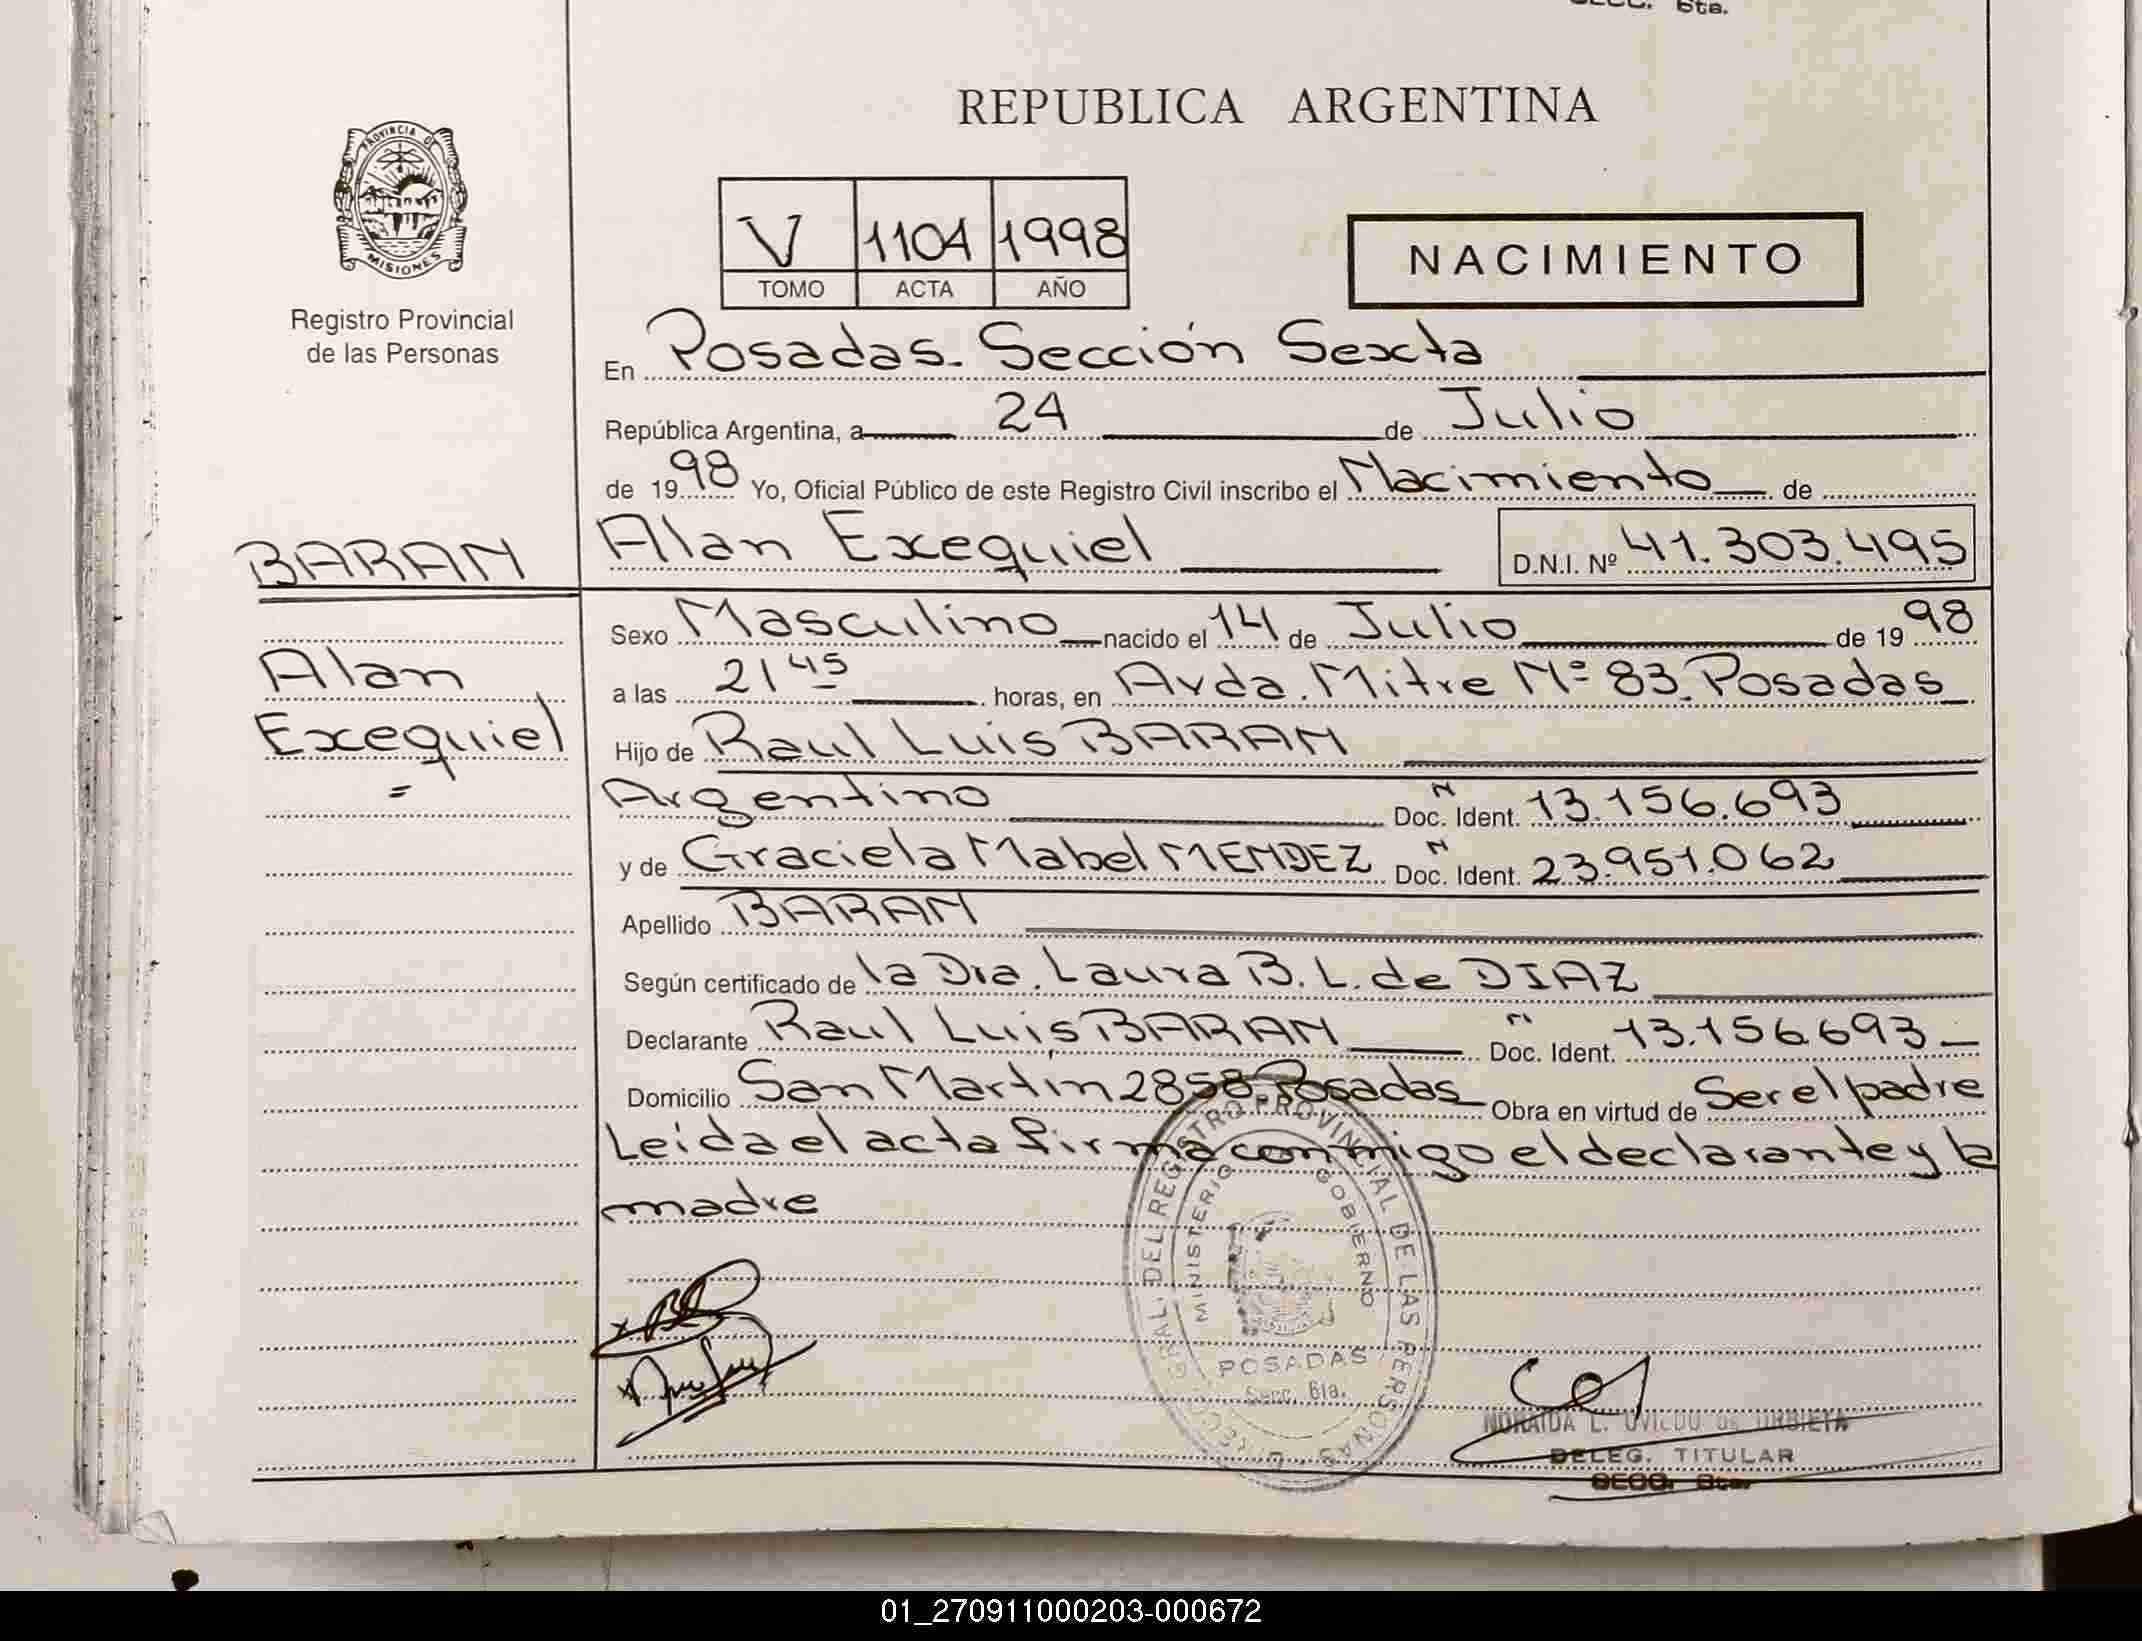 REPUBLICA ARGENTINA
PROVINCIA DE
MISIONES
Registro Provincial
de las Personas
V 1101 1998
TOMO ACTA AÑO
NACIMIENTO
En Posadas. Sección Sexta
República Argentina, a 24 de Julio
de 1998 Yo, Oficial Público de este Registro Civil inscribo el Nacimiento de
BARAN
Alan Exequiel D.N.I. Nº 41.303.495
Sexo Masculino nacido el 14 de Julio de 1998
Alan
Exequiel =
a las 21 45 horas, en Avda. Mitre Nº 83. Posadas
Hijo de Raul Luis BARAN
Argentino Doc. Ident. N 13.156.693
y de Graciela Mabel MENDEZ Doc. Ident. N 23.951.062
Apellido BARAN
Según certificado de la Dra. Laura B. L. de DIAZ
Declarante Raul Luis BARAN Doc. Ident. N 13.156.693
Domicilio San Martín 2858. Posadas Obra en virtud de Ser el padre
Leída el acta firma conmigo el declarante y la
madre
REGISTRO PROVINCIAL DE LAS PERSONAS
MINISTERIO GOBIERNO
POSADAS
Secc. 6ta.
NORAIDA L. OVIEDO de URBIETA
DELEG. TITULAR
SECC. 6ta.
01_270911000203-000672